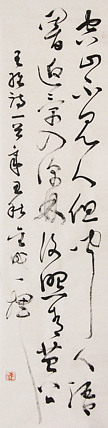 空山不見人但聞人語
響返景入深林復照青苔上
王維詩一首